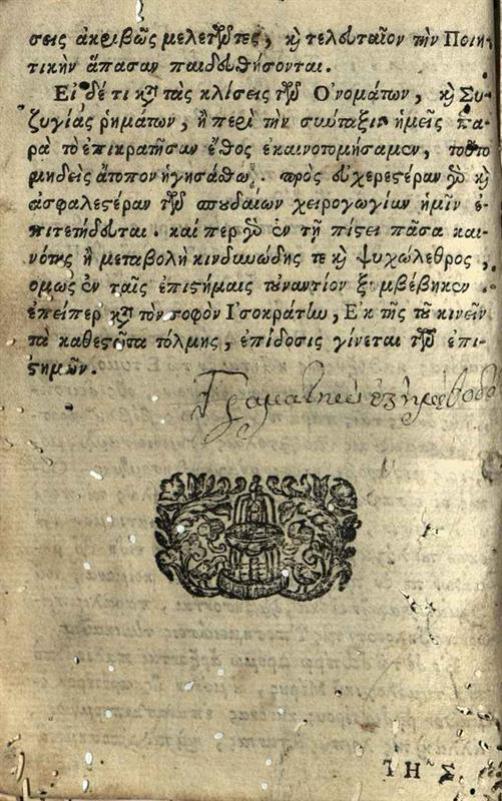 σεις ἀκριβῶς μελετῶντες, καὶ τελευταῖον τὴν Ποιη-
τικὴν ἅπασαν παιδευθήσονται.
Εἰ δέ τι κατὰ τὰς κλίσεις τῶν Ὀνομάτων, καὶ Συ-
ζυγίας ῥημάτων, ἢ περὶ τὴν σύνταξιν ἡμεῖς πα-
ρὰ τὸ ἐπικρατῆσαν ἔθος ἐκαινοτομήσαμεν, τοῦτο
μηδεὶς ἄτοπον ἡγησάσθω. πρὸς εὐχερεστέραν γὰρ καὶ
ἀσφαλεστέραν τῶν σπουδαίων χειραγωγίαν ἡμῖν ἐ-
πιτετήδευται. καί περ γὰρ ἐν τῇ πίστει πᾶσα και-
νότης ἢ μεταβολὴ κινδυνώδης τε καὶ ψυχώλεθρος,
ὅμως ἐν ταῖς ἐπιστήμαις τοὐναντίον ξυμβέβηκεν.
ἐπείπερ κατὰ τὸν σοφὸν Ἰσοκράτην, Ἐκ τῆς τοῦ κινεῖν
τὰ καθεστῶτα τόλμης, ἐπίδοσις γίνεται τῶν ἐπι-
στημῶν.
ΤΗΣ